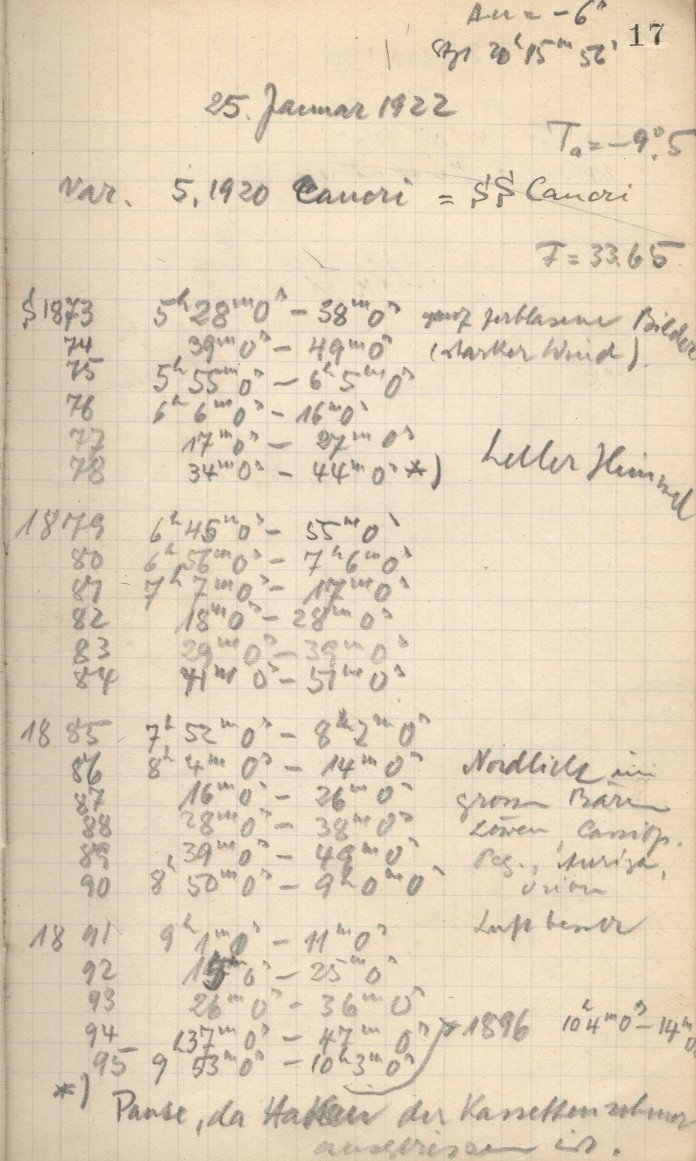 Δu = -6ˢ
17
20ʰ 15ᵐ 56ˢ
25. Januar 1922
Tₐ = -9°,5
Var. 5,1920 Cancri = SS Cancri
F = 33.65
S 1873 5ʰ 28ᵐ 0ˢ - 38ᵐ 0ˢ ganz zerblasene Bilder
74 39ᵐ 0ˢ - 49ᵐ 0ˢ (starker Wind)
75 5ʰ 55ᵐ 0ˢ - 6ʰ 5ᵐ 0ˢ
76 6ʰ 6ᵐ 0ˢ - 16ᵐ 0ˢ
77 17ᵐ 0ˢ - 27ᵐ 0ˢ
78 34ᵐ 0ˢ - 44ᵐ 0ˢ *) heller Himmel
1879 6ʰ 45ᵐ 0ˢ - 55ᵐ 0ˢ
80 6ʰ 56ᵐ 0ˢ - 7ʰ 6ᵐ 0ˢ
81 7ʰ 7ᵐ 0ˢ - 17ᵐ 0ˢ
82 18ᵐ 0ˢ - 28ᵐ 0ˢ
83 29ᵐ 0ˢ - 39ᵐ 0ˢ
84 41ᵐ 0ˢ - 51ᵐ 0ˢ
18 85 7ʰ 52ᵐ 0ˢ - 8ʰ 2ᵐ 0ˢ
86 8ʰ 4ᵐ 0ˢ - 14ᵐ 0ˢ Nordlicht im
87 16ᵐ 0ˢ - 26ᵐ 0ˢ grossen Bären
88 28ᵐ 0ˢ - 38ᵐ 0ˢ Löwen, Cassiop.
89 39ᵐ 0ˢ - 49ᵐ 0ˢ Peg., Auriga,
90 8ʰ 50ᵐ 0ˢ - 9ʰ 0ᵐ 0ˢ Orion
Luft besser
18 91 9ʰ 1ᵐ 0ˢ - 11ᵐ 0ˢ
92 15ᵐ 0ˢ - 25ᵐ 0ˢ
93 26ᵐ 0ˢ - 36ᵐ 0ˢ
94 37ᵐ 0ˢ - 47ᵐ 0ˢ 1896 10ʰ 4ᵐ 0ˢ - 14ᵐ 0ˢ
95 9 53ᵐ 0ˢ - 10ʰ 3ᵐ 0ˢ
*) Pause, da Haken der Kassetten
ausgerissen ist.